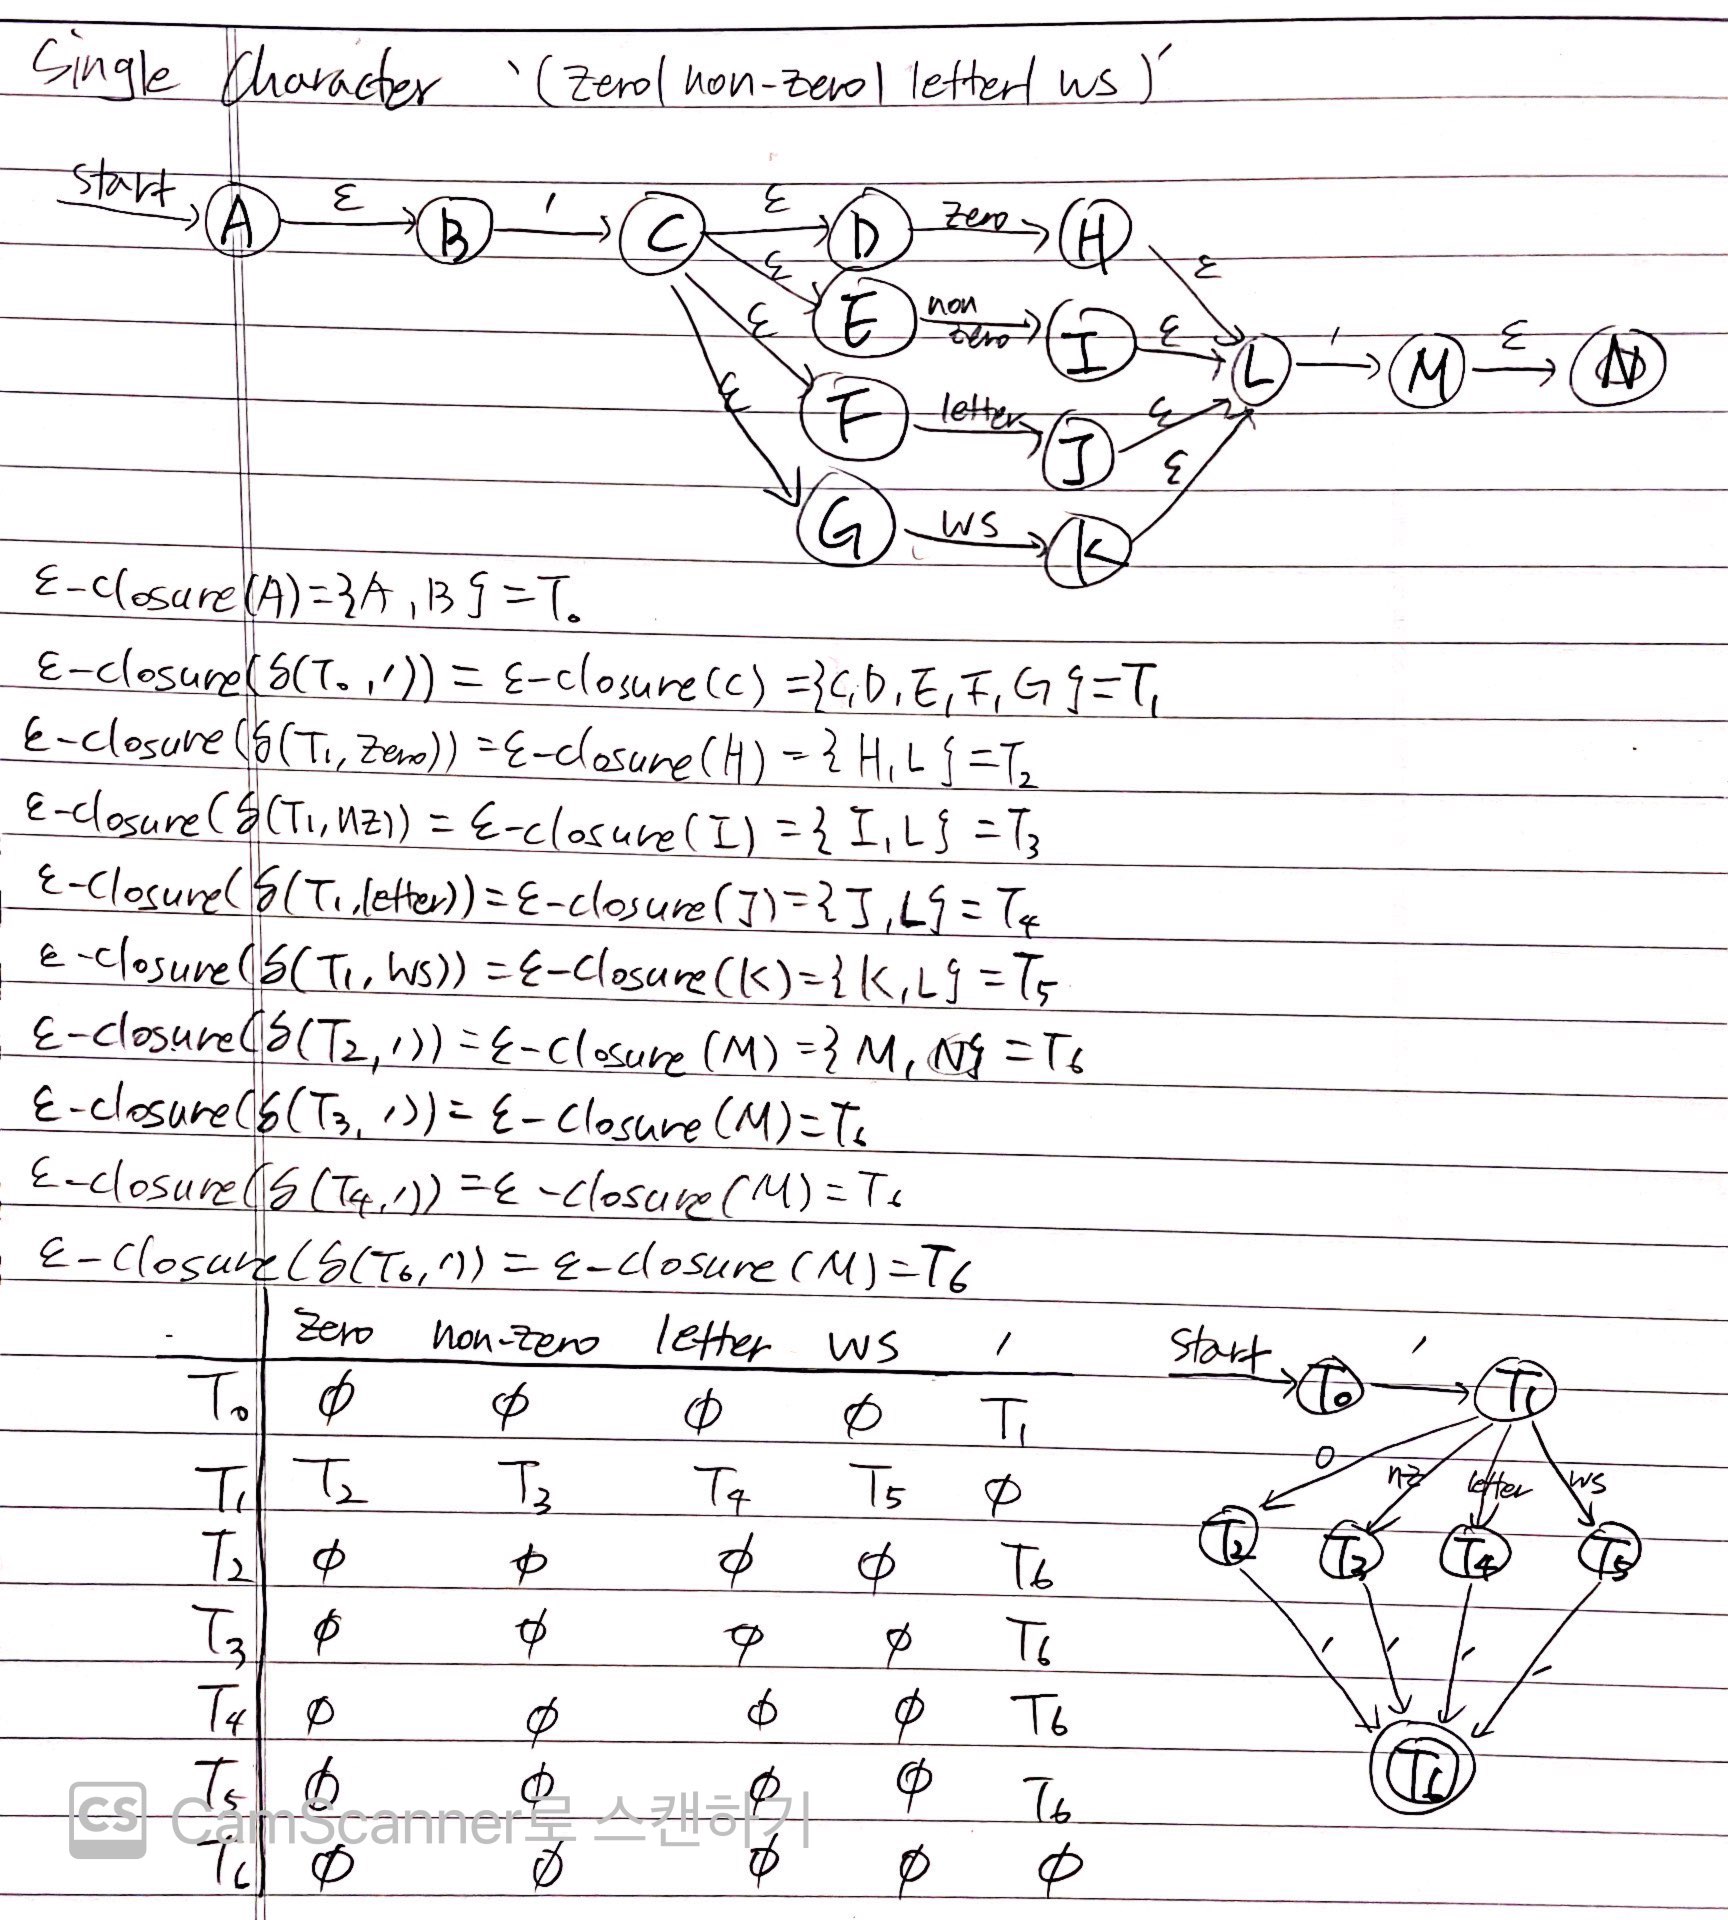 Single Character '(zero | non-zero | letter | ws)'
start A ε B ' C ε D zero H
ε ε
E non zero I ε L ' M ε N
ε
F letter J ε
ε ε
G ws K
ε-closure(A)={A,B}=T₀
ε-closure(δ(T₀,'))=ε-closure(C)={C,D,E,F,G}=T₁
ε-closure(δ(T₁,zero))=ε-closure(H)={H,L}=T₂
ε-closure(δ(T₁,nz))=ε-closure(I)={I,L}=T₃
ε-closure(δ(T₁,letter))=ε-closure(J)={J,L}=T₄
ε-closure(δ(T₁,ws))=ε-closure(K)={K,L}=T₅
ε-closure(δ(T₂,'))=ε-closure(M)={M,N}=T₆
ε-closure(δ(T₃,'))=ε-closure(M)=T₆
ε-closure(δ(T₄,'))=ε-closure(M)=T₆
ε-closure(δ(T₆,'))=ε-closure(M)=T₆
zero non-zero letter ws '
T₀ ϕ ϕ ϕ ϕ T₁
T₁ T₂ T₃ T₄ T₅ ϕ
T₂ ϕ ϕ ϕ ϕ T₆
T₃ ϕ ϕ ϕ ϕ T₆
T₄ ϕ ϕ ϕ ϕ T₆
T₅ ϕ ϕ ϕ ϕ T₆
T₆ ϕ ϕ ϕ ϕ ϕ
start T₀ ' T₁
0 nz letter ws
T₂ T₃ T₄ T₅
' ' ' '
T₆
CS CamScanner로 스캔하기